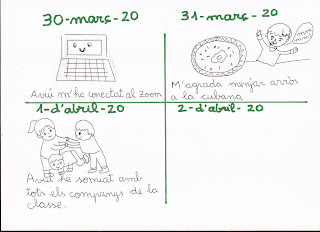 30-març-20
Avui m'he conectat al zoom
31-març-20
M'agrada menjar arròs
a la cubana
1-d'abril-20
Avui he somiat amb
tots els companys de la
classe.
2-d'abril-20